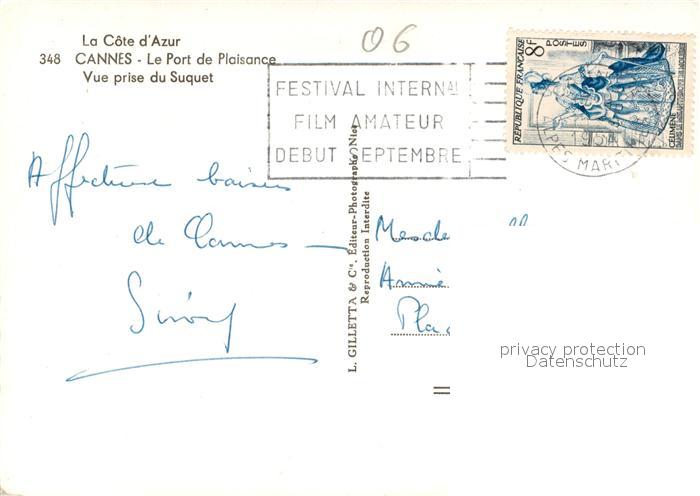 La Côte d'Azur
348 CANNES - Le Port de Plaisance
Vue prise du Suquet
06
FESTIVAL INTERNAL
FILM AMATEUR
DEBUT SEPTEMBRE
RÉPUBLIQUE FRANÇAISE
8F
POSTES
Affectueux baisers
de Cannes
L. GILLETTA & Cie, Éditeur-Photographe, Nice
Reproduction Interdite
Mesde
Année
Pla
privacy protection
Datenschutz